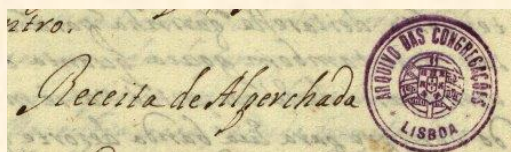 ntro.
Receita de Algerchada
ARQUIVO DAS CONGREGAÇÕES
LISBOA